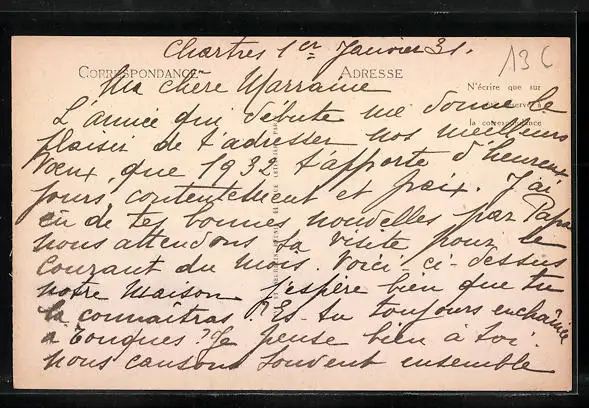 Chartres 1er Janvier 31.
13 C
CORRESPONDANCE
ADRESSE
N'écrire que sur
la correspondance
Ma chère Marraine
L'année qui débute me donne le
plaisir de t'adresser nos meilleurs
vœux, que 1932 t'apporte d'heureux
jours, contentement et paix. J'ai
eu de tes bonnes nouvelles par Papa
nous attendons sa visite pour le
courant du mois. Voici ci-dessus
notre maison j'espère bien que tu
la connaîtras. Es-tu toujours enchaînée
à Touques? Je pense bien à toi.
nous causons souvent ensemble